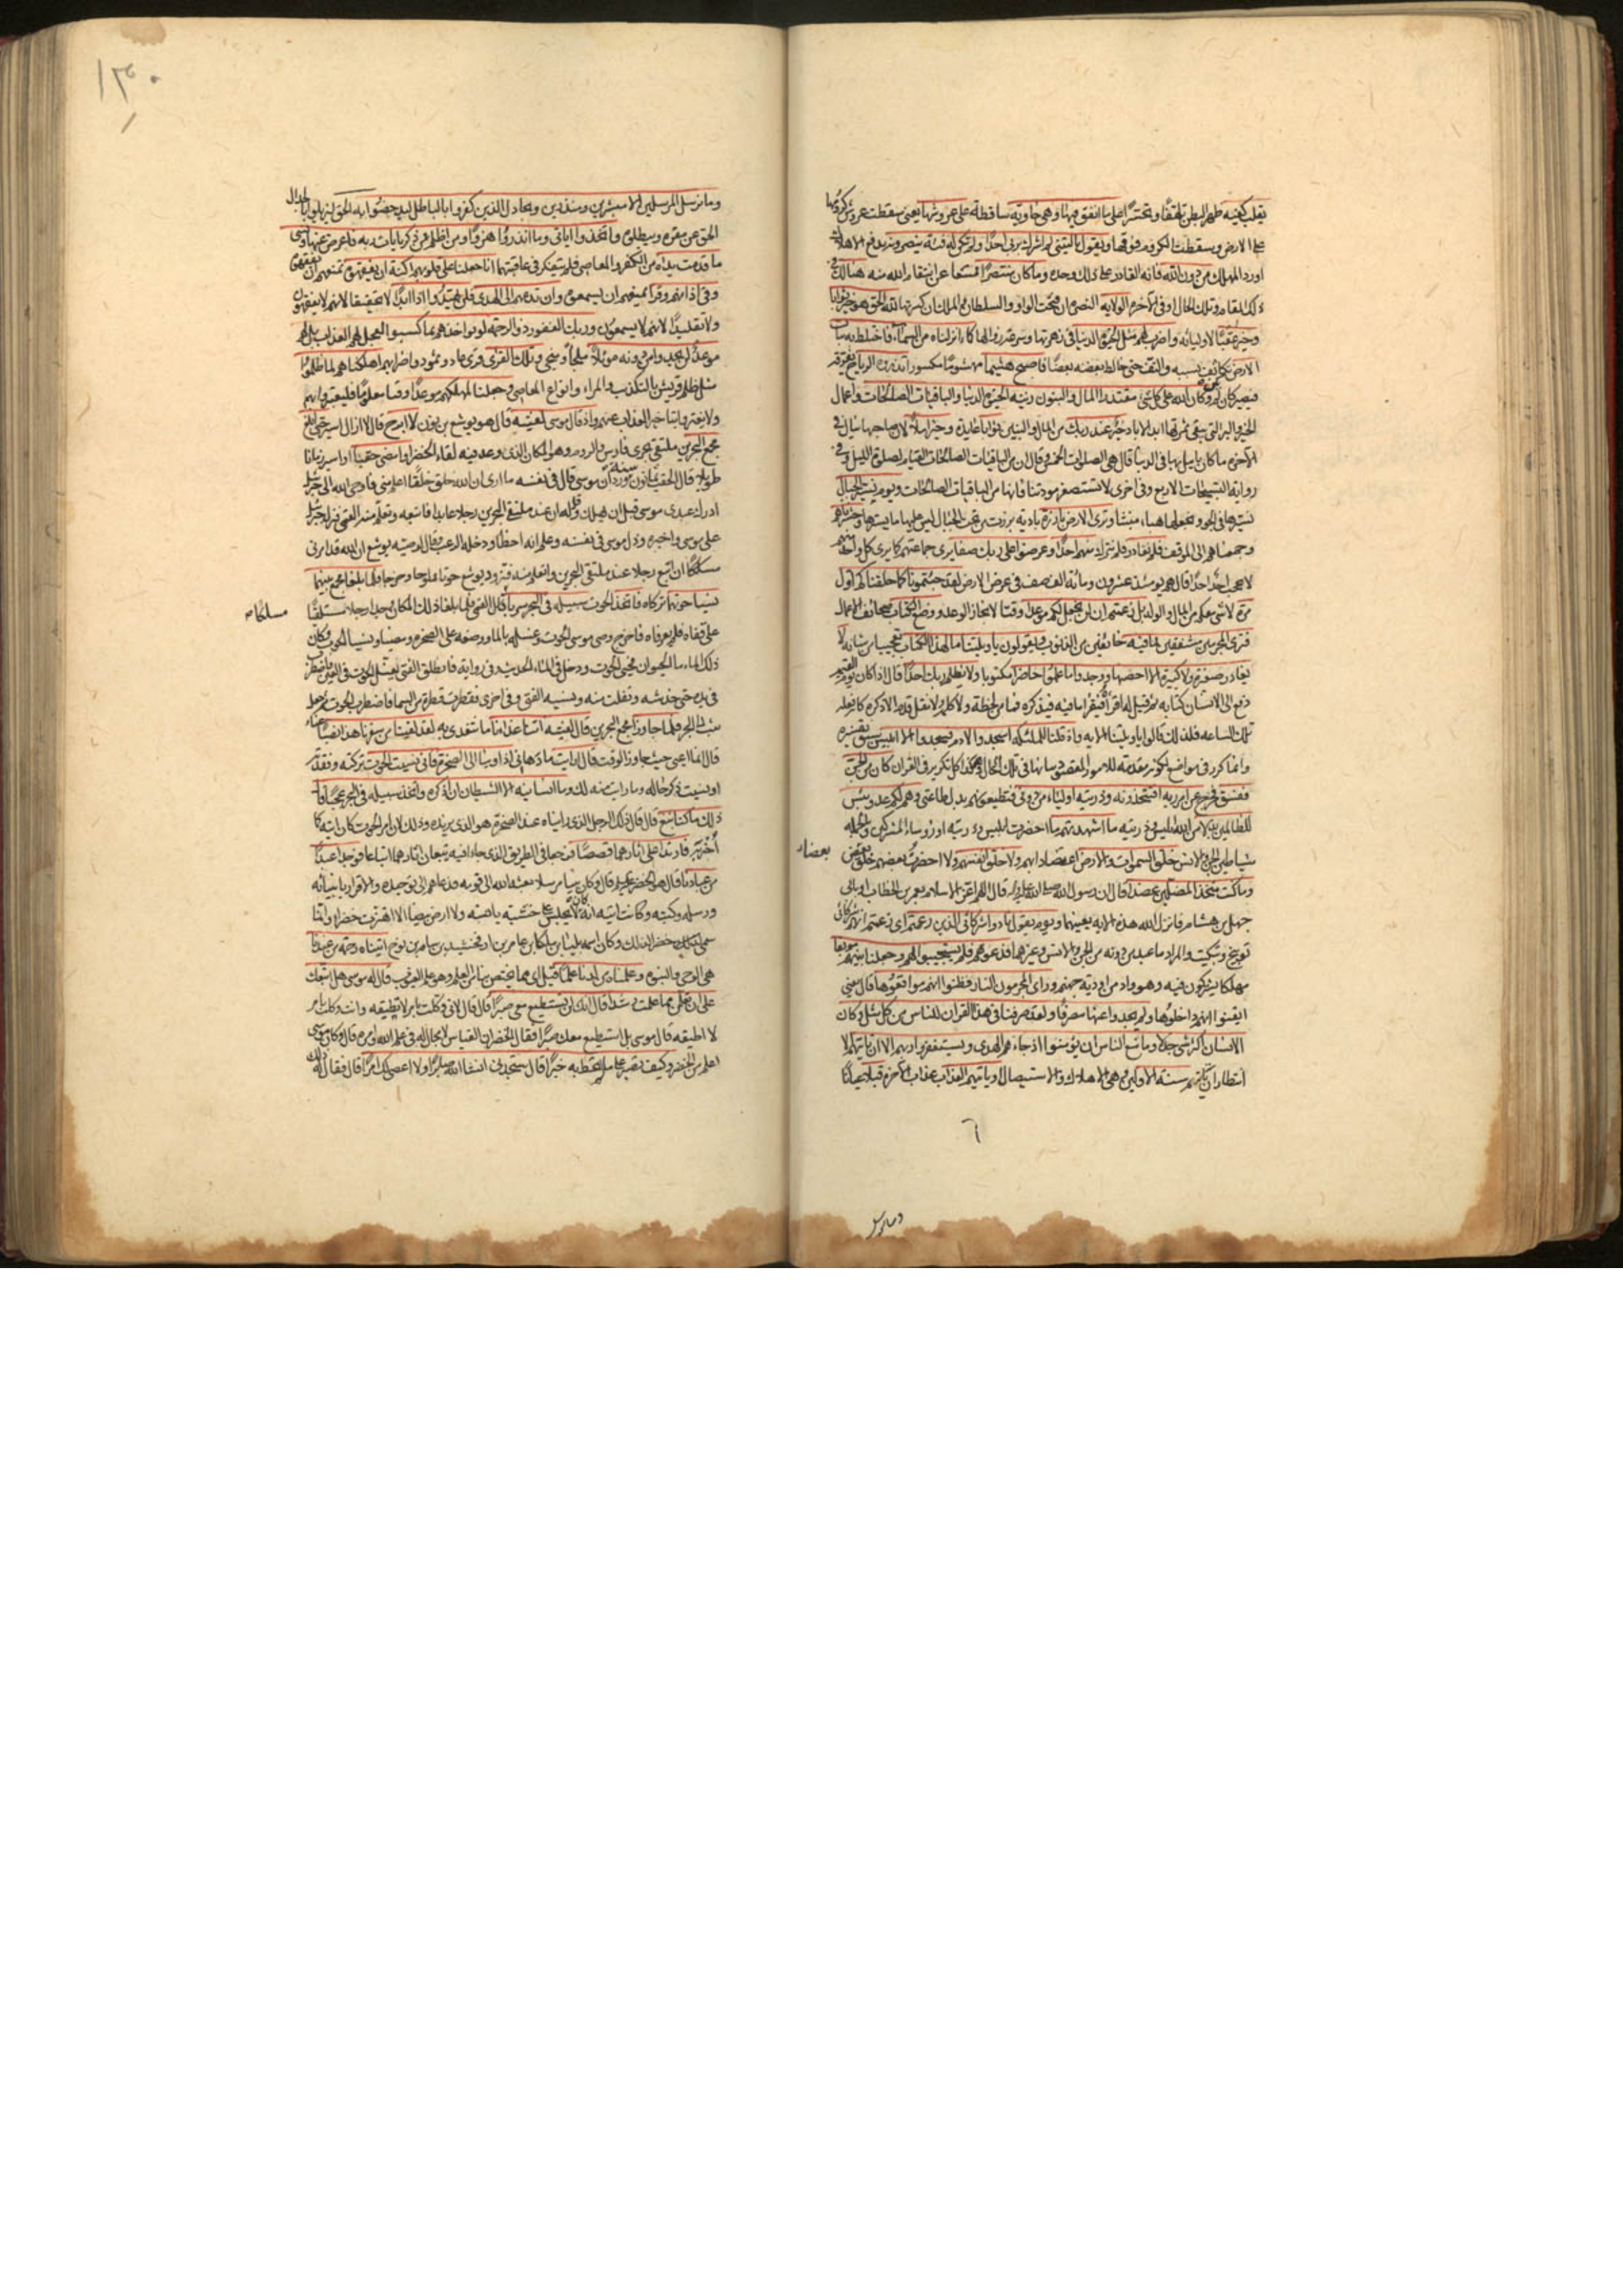 يقلب كفيه ظهر البطن تلهفا وتحسرا على ما انفق فيها وهي خاوية ساقطة على عروشها يعني سقطت عروش كرومها
على الارض وسقطت الكروم فوقها ويقول يا ليتني لم اشرك بربي احدا ولم تكن له فئة ينصرونه بدفع الاهلاك
اورد المهلك من دون الله فانه القادر على ذلك وحده وما كان منتصرا ممتنعا عن انتقام الله منه هنالك في
ذلك المقام وتلك الحال وفي الاخرة الولاية النصرة ان فتحت الواو والسلطان والملك ان كسرتها لله الحق هو خير ثوابا
وخير عقبا لاوليائه واضرب لهم مثل الحيوة الدنيا في زهرتها وسرعة زوالها كماء انزلناه من السماء فاختلط به نبات
الارض تكاثف بسببه والتف حتى خالط بعضه بعضا فاصبح هشيما مهشوما مكسورا تذروه الرياح تفرقه
فيصير كان لم يكن وكان الله على كل شيء مقتدرا المال والبنون زينة الحيوة الدنيا والباقيات الصالحات واعمال
الخير والبر التي تبقى ثمرتها ابد الاباد خير عند ربك من المال والبنين ثوابا عايدة وخير املا لان صاحبها ينال في
الاخرة ما كان يامل بها في الدنيا قال هي الصلوات الخمس وقال ان من الباقيات الصالحات القيام لصلوة الليل وفي
رواية التسبيحات الاربع وفي اخرى لا تستصغر مودتنا فانها من الباقيات الصالحات ويوم نسير الجبال
نسيرها في الجو ونجعلها هباء منبثا وترى الارض بارزة بادية برزت من تحت الجبال ليس عليها ما يسترها وحشرناهم
وجمعناهم الى الموقف فلم نغادر فلم نترك منهم احدا وعرضوا على ربك صفا يرى جماعتهم كما يرى كل واحد منهم
لا يحجب احد احدا قال هم يومئذ عشرون ومائة الف صف في عرض الارض لقد جئتمونا كما خلقناكم اول
مرة لا شيء معكم من المال والولد بل زعمتم ان لن نجعل لكم موعدا وقتا لانجاز الوعد ووضع الكتاب صحائف الاعمال
فترى المجرمين مشفقين مما فيه خائفين من الذنوب ويقولون يا ويلتنا ما لهذا الكتاب تعجبا من شانه لا
يغادر صغيرة ولا كبيرة الا احصيها ووجدوا ما عملوا حاضرا مكتوبا ولا يظلم ربك احدا قال اذا كان يوم القيمة
دفع الى الانسان كتابه ثم قيل له اقرا فيقرا ما فيه فيذكره فما من لحظة ولا كلمة ولا نقل قدم الا ذكره كانه فعله
تلك الساعة فلذلك قالوا يا ويلتنا الاية واذ قلنا للملئكة اسجدوا لادم فسجدوا الا ابليس سبق تفسيره
وانما كرر في مواضع لكونه مقدمة للامور المقصود بيانها في تلك المحال وهكذا كل تكرير في القران كان من الجن
ففسق فخرج عن امر ربه افتتخذونه وذريته اولياء من دوني فتطيعونهم بدل طاعتي وهم لكم عدو بئس
للظالمين بدلا من الله ابليس وذريته ما اشهدتهم ما احضرت ابليس وذريته او رؤساء المشركين والجملة
شياطين الجن والانس خلق السموات والارض اعتضادا بهم ولا خلق انفسهم ولا احضرت بعضهم خلق بعض
بعضاء
وما كنت متخذ المضلين عضدا قال ان رسول الله قال اللهم اعز الاسلام بعمر بن الخطاب او بابي
جهل بن هشام فانزل الله هذه الاية يعنيهما ويوم يقول نادوا شركائي الذين زعمتم اي زعمتم انهم شركائي
توبيخ وتبكيت والمراد ما عبد من دونه من الجن والانس وغيرهما فدعوهم فلم يستجيبوا لهم وجعلنا بينهم موبقا
مهلكا يشتركون فيه وهو واد من اودية جهنم وراى المجرمون النار فظنوا انهم مواقعوها قال يعني
ايقنوا انهم داخلوها ولم يجدوا عنها مصرفا ولقد صرفنا في هذا القران للناس من كل مثل وكان
الانسان اكثر شيء جدلا وما منع الناس ان يؤمنوا اذ جاءهم الهدى ويستغفروا ربهم الا ان تاتيهم الا
انتظار ان تاتيهم سنة الاولين وهي الاهلاك والاستيصال او ياتيهم العذاب عذاب الاخرة قبلا عيانا
٦
١٣٠
وما نرسل المرسلين الا مبشرين ومنذرين ويجادل الذين كفروا بالباطل ليدحضوا به الحق ليزيلوا بالجدال
الحق عن مقره ويبطلوه واتخذوا اياتي وما انذروا هزوا ومن اظلم ممن ذكر بايات ربه فاعرض عنها ونسي
ما قدمت يداه من الكفر والمعاصي فلم يتفكر في عاقبتهما انا جعلنا على قلوبهم اكنة ان يفقهوه تمنعهم ان يفقهوه
وفي اذانهم وقرا يمنعهم ان يسمعوه وان تدعهم الى الهدى فلن يهتدوا اذا ابدا لا تحقيقا لانهم لا يفقهون
ولا تقليدا لانهم لا يسمعون وربك الغفور ذو الرحمة لو يؤاخذهم بما كسبوا لعجل لهم العذاب بل لهم
موعد لن يجدوا من دونه موئلا ملجأ ومنجى وتلك القرى قرى عاد وثمود واضرابهم اهلكناهم لما ظلموا
مثل ظلم قريش بالتكذيب والمراء وانواع المعاصي وجعلنا لمهلكهم موعدا وقتا معلوما فليعتبروا بهم
ولا يغتروا بتاخير العذاب عنهم واذ قال موسى لفتيه قال هو يوشع بن نون لا ابرح قال لا ازال اسير حتى ابلغ
مجمع البحرين ملتقى بحري فارس والروم وهو المكان الذي وعد فيه لقاء الخضر او امضي حقبا او اسير زمانا
طويلا قال الحقب ثمانون سنة ورد ان موسى قال في نفسه ما ارى ان الله خلق خلقا اعلم مني فاوحى الله الى جبرئيل
ادرك عبدي موسى قبل ان يهلك وقل له ان عند ملتقى البحرين رجلا عابدا فاتبعه وتعلم منه الفتى فنزل جبرئيل
على موسى واخبره وذل موسى في نفسه وعلم انه اخطأ ودخله الرعب فقال لوصيه يوشع ان الله قد امرني
ان اتبع رجلا عند ملتقى البحرين واتعلم منه فتزود يوشع حوتا مملوحا وخرجا فلما بلغا مجمع بينهما
نسيا حوتهما تركاه فاتخذ الحوت سبيله في البحر سربا قال الفتى فلما بلغا ذلك المكان وجدا رجلا مستلقيا
على قفاه فلم يعرفاه فاخرج وصي موسى الحوت وغسله بالماء ووضعه على الصخرة ومضيا ونسيا الحوت وكان
ذلك الماء ماء الحيوان فحيي الحوت ودخل في الماء الحديث وفي رواية فانطلق الفتى يغسل الحوت في العين فاضطرب
في يده حتى خدشه وتفلت منه ونسيه الفتى وفي اخرى فقطرت قطرة من السماء فاضطرب الحوت ثم جعل
الى البحر فلما جاوزا مجمع البحرين قال لفتيه اتنا غدائنا ما نتغدى به لقد لقينا من سفرنا هذا نصبا عناء
قال انما اعيى حيث جاوز الوقت قال ارايت ما دهاني اذ اوينا الى الصخرة فاني نسيت الحوت تركته وفقدته
او نسيت ذكر حاله وما رايت منه لك وما انسانيه الا الشيطان ان اذكره واتخذ سبيله في البحر عجبا قال
ذلك ما كنا نبغ قال قال ذلك الرجل الذي رايناه عند الصخرة هو الذي نريده وذلك لان امر الحوت كان ايته كما
فارتدا على اثارهما قصصا فرجعا في الطريق الذي جاءا فيه يتبعان اثارهما اتباعا فوجدا عبدا
من عبادنا قال هو الخضر قال وكان نبيا مرسلا بعثه الله الى قومه فدعاهم الى توحيده والاقرار بانبيائه
ورسله وكتبه وكانت ايته انه كان لا يجلس على خشبة يابسة ولا ارض بيضاء الا اهتزت خضراء وانما
سمي خضرا لذلك وكان اسمه بليا بن ملكا بن عامر بن ارفخشيد بن سام بن نوح اتيناه رحمة من عندنا
هي الوحي والنبوة وعلمناه من لدنا علما قيل اي مما يختص بنا من العلم وهو علم الغيوب قال له موسى هل اتبعك
على ان تعلمن مما علمت رشدا قال انك لن تستطيع معي صبرا قال قال لاني وكلت بامر لا تطيقه وانت وكلت بامر
لا اطيقه قال موسى بل استطيع معك صبرا فقال الخضر ان القياس لا مجال له في علم الله وامره قال وكان موسى
اعلم من الخضر وكيف تصبر على ما لم تحط به خبرا قال ستجدني ان شاء الله صابرا ولا اعصي لك امرا قال فقال له